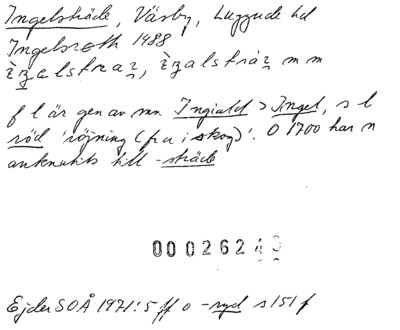 Ingelsträde, Väsby, Luggude hd
Ingelsroth 1488,
ìzalstraz, ìzalstráz m m
f l är gen av mn Ingiald > Ingel, s l
röd 'röjning (fra i skog)'. O 1700 har n
anknutits till -sträde
000262
Ejder SOÅ 1971:5 ff o -ryd s 151 f